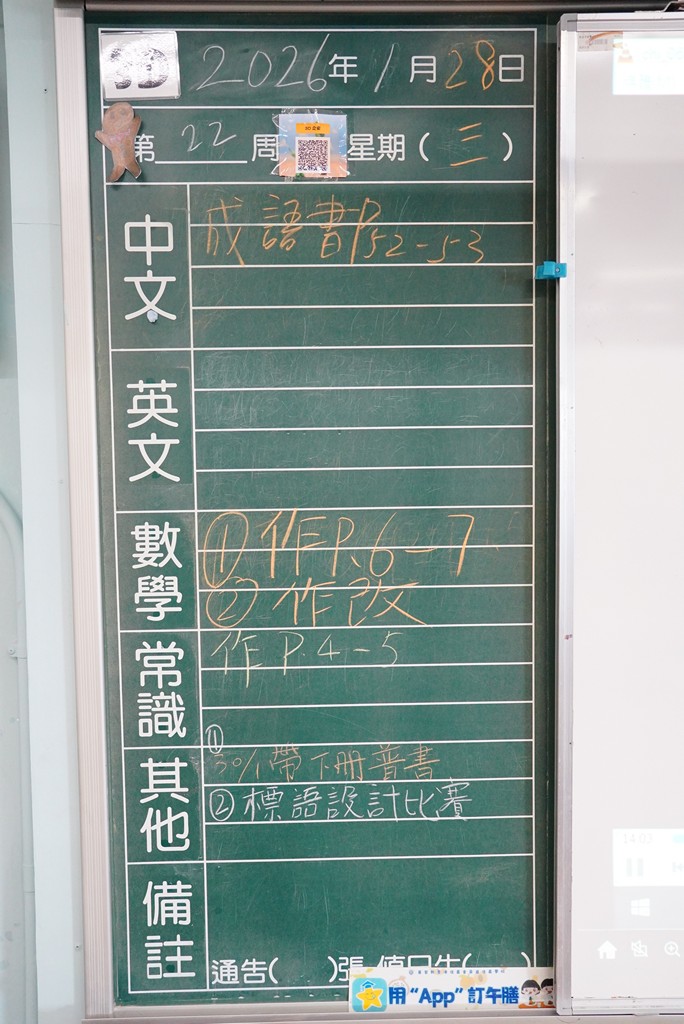 3D 2026年1月28日
第22周 星期(三)
中文
成語書P52-53
英文
數學
①作P.6-7
②作改
常識
作P.4-5
其他
①
30/1帶下冊普書
②標語設計比賽
備註
通告( )張 值日生( )
用“App”訂午膳
14:03